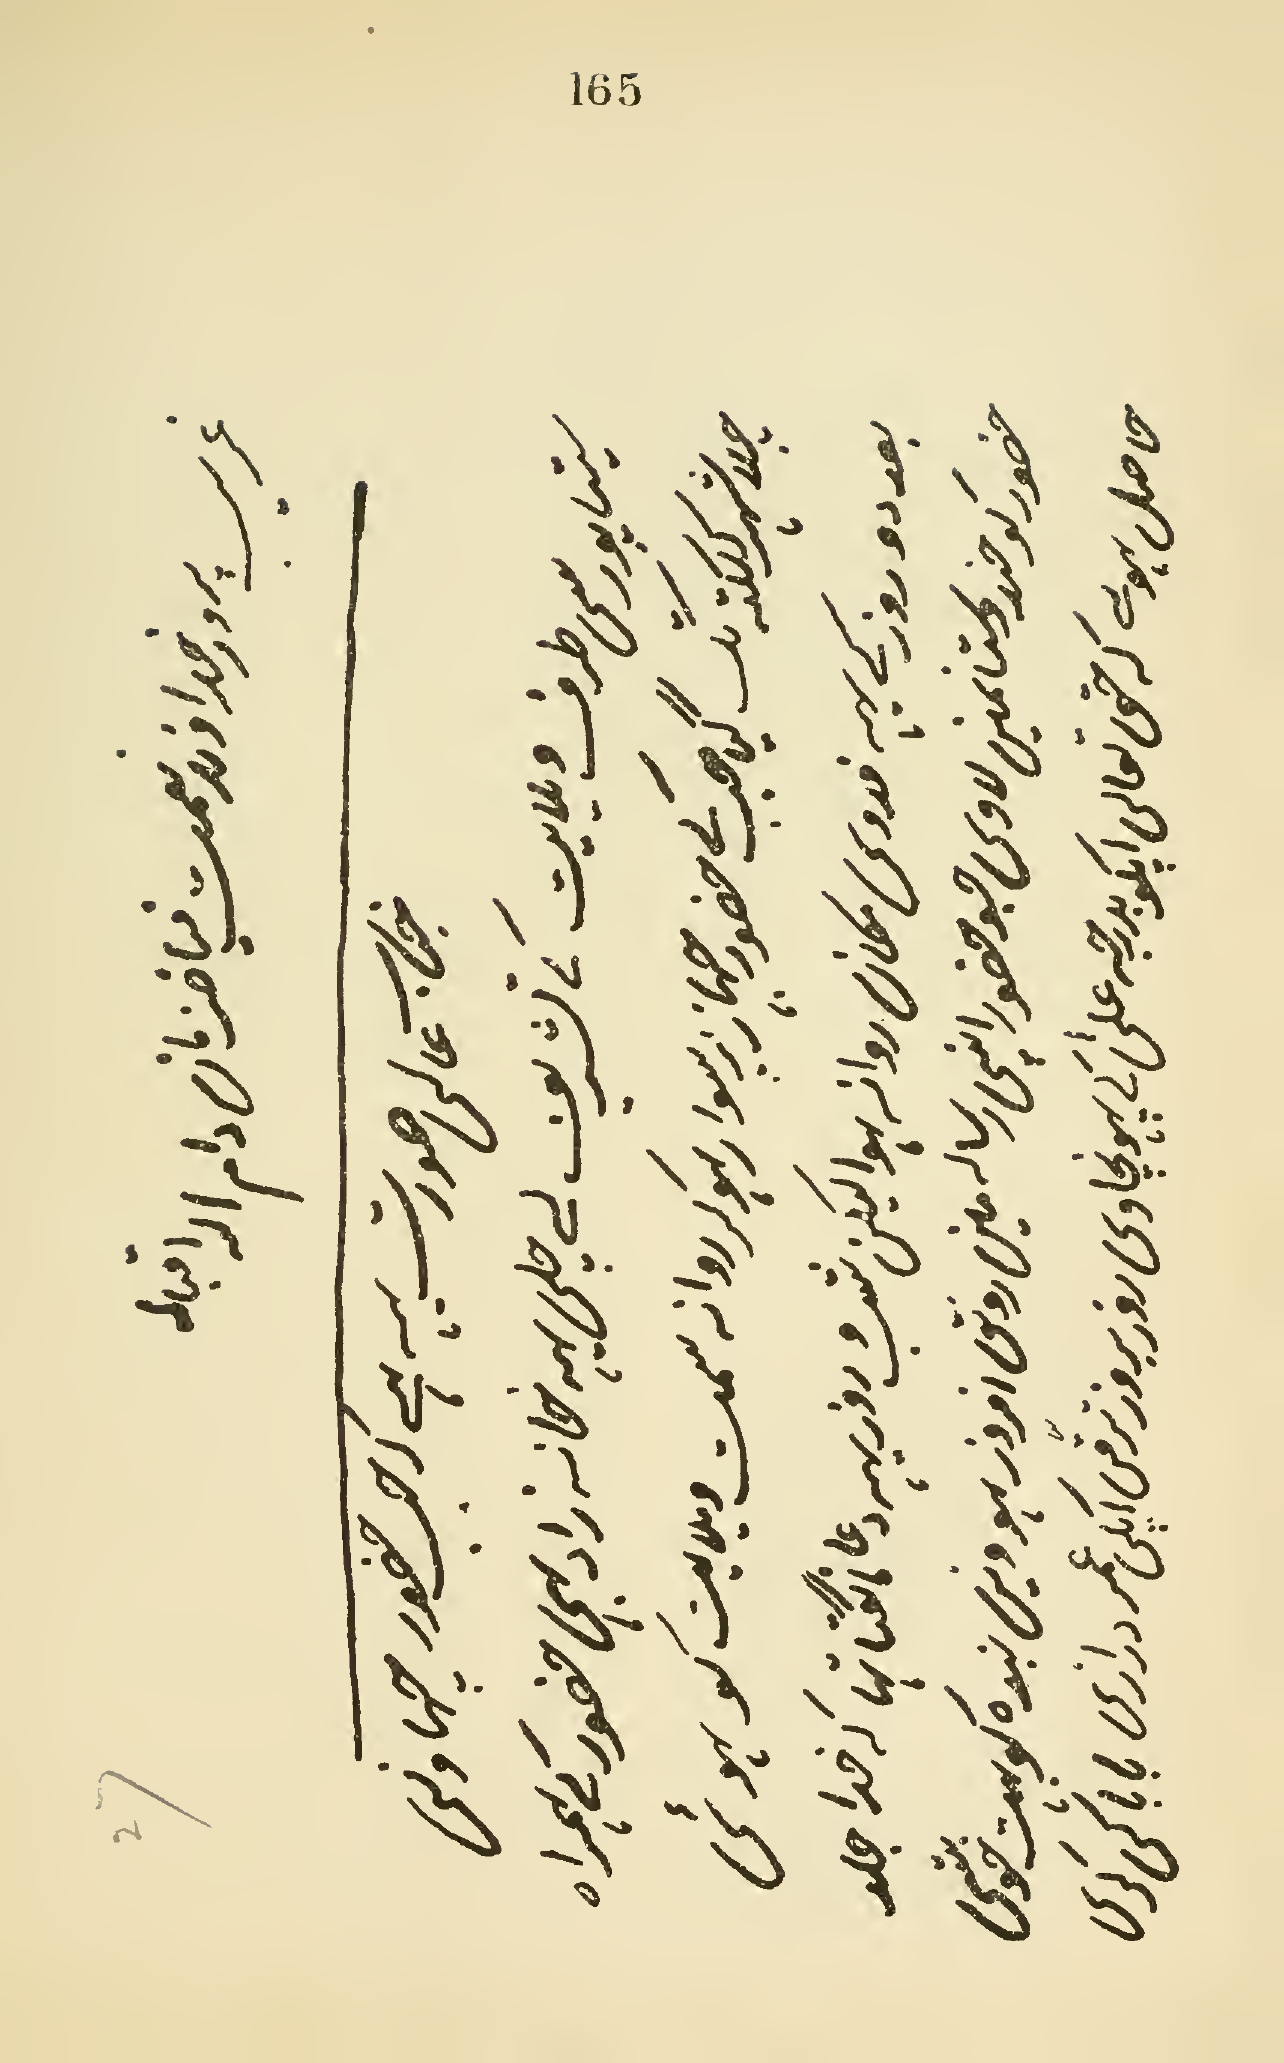 165
غریب پرور خداوند نعمت فیاض زمان دام اقباله
جناب عالی صورت یہ ہے کہ جب حضور چھاونی
سیتاپور سی طرف ولایت کے تشریف لے چلی یہہ خانہ زاد بہی حضور کے ہمراہ
چلا شہر کلکتہ تک گیا جب کے حضور جہاز پر سوار ہوکر روانہ سمت ولایت کو ہوئی
بعد دو روز کے یہہ فدوی مکان روانہ ہوا لیکن شب و روز یہہ دعا مانگتا تہا کہ خدا جلد
حضور کو ہندوستانمین لاوی جب حضور اسی رسالہ مین رونق افروز ہووین بندہ کو بہت خوشی
حاصل ہوئے کہ حق تعالی اپکو بدرجہ علیٰ کے پہونچاوی روز بروز ترقی اپکی عمر درازی بابا کی کری